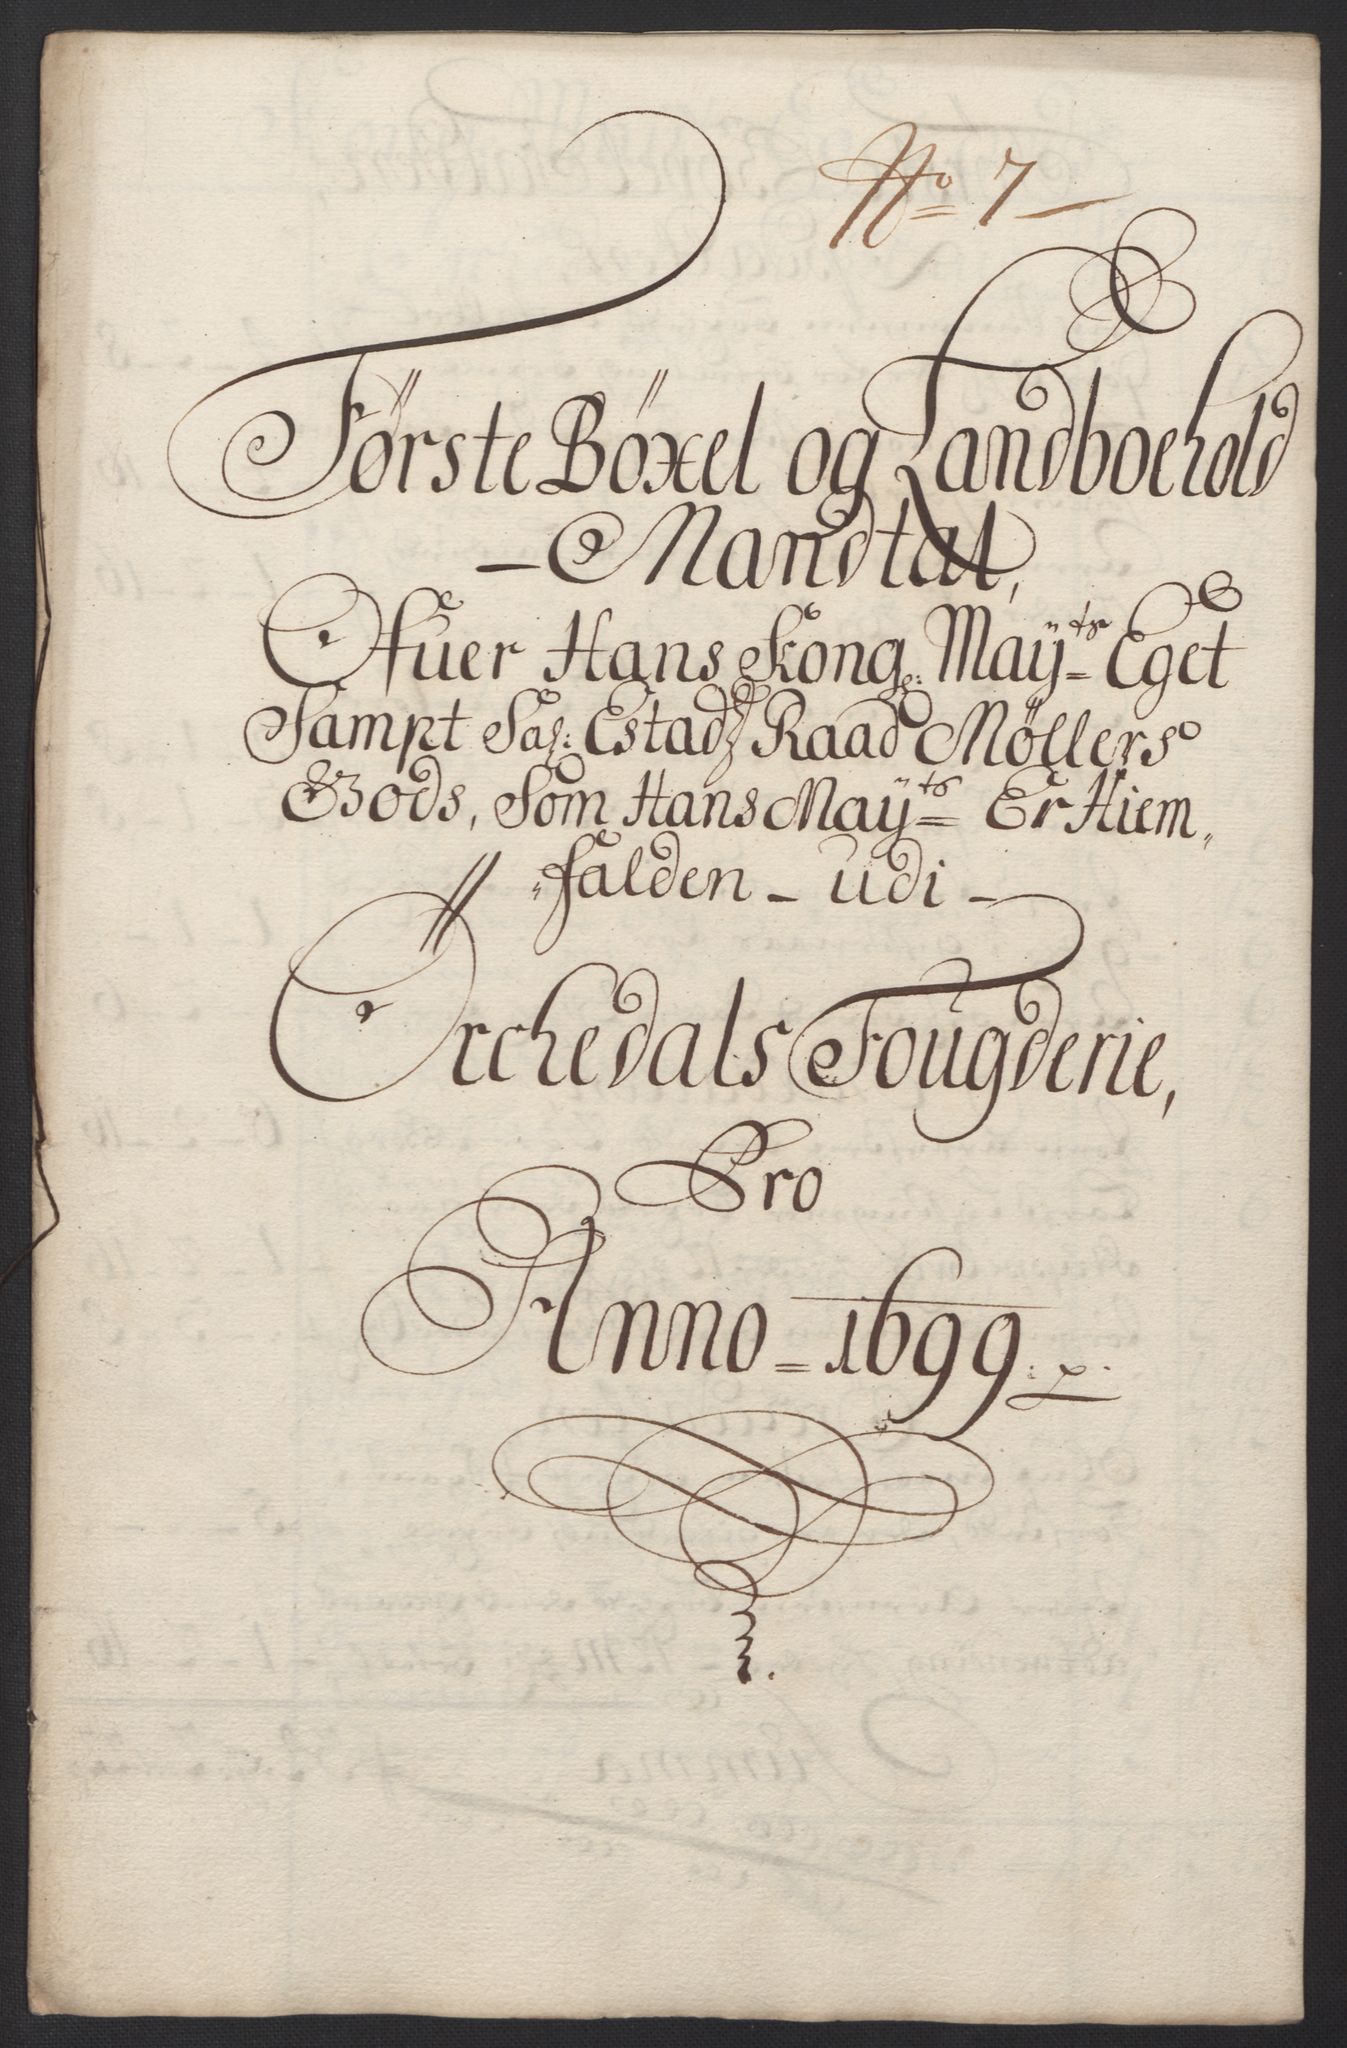 No 7
Første Böxel og Landboehold
- Mandtal,
Ofuer Hans Kong: Maÿts Eget
Sampt Sal: Estadz Raad Möllers
Gods, Som Hans Maÿts Er Hiem„
„falden - udi -
Örchedals Fougderie,
Pro
Anno = 1699